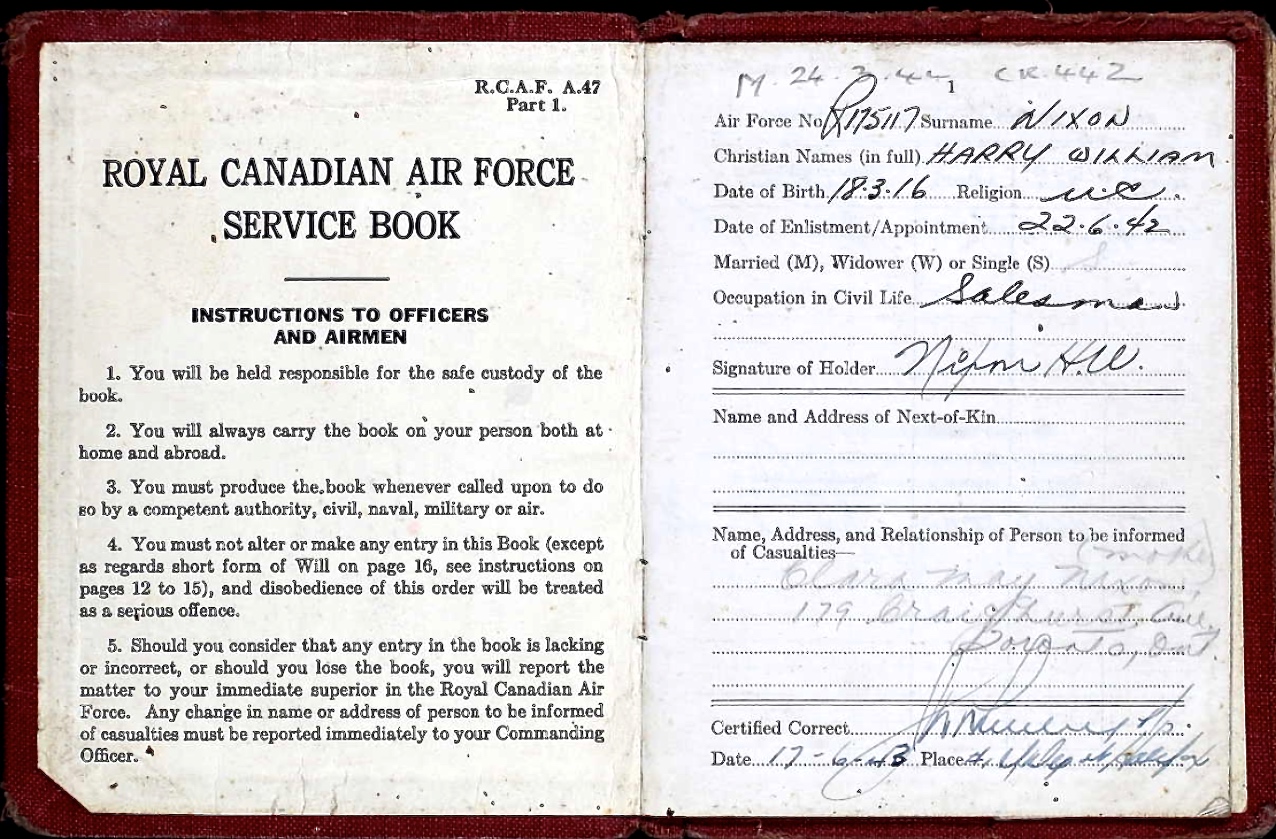 R.C.A.F. A.47
Part 1.
ROYAL CANADIAN AIR FORCE
SERVICE BOOK
INSTRUCTIONS TO OFFICERS
AND AIRMEN
1. You will be held responsible for the safe custody of the
book.
2. You will always carry the book on your person both at
home and abroad.
3. You must produce the book whenever called upon to do
so by a competent authority, civil, naval, military or air.
4. You must not alter or make any entry in this Book (except
as regards short form of Will on page 16, see instructions on
pages 12 to 15), and disobedience of this order will be treated
as a serious offence.
5. Should you consider that any entry in the book is lacking
or incorrect, or should you lose the book, you will report the
matter to your immediate superior in the Royal Canadian Air
Force. Any change in name or address of person to be informed
of casualties must be reported immediately to your Commanding
Officer.
M. 24 CR.442
1
Air Force No. R175117 Surname NIXON
Christian Names (in full) HARRY WILLIAM
Date of Birth 18.3.16 Religion U.C.
Date of Enlistment/Appointment 22.6.42
Married (M), Widower (W) or Single (S) S
Occupation in Civil Life Salesman
Signature of Holder Nixon H.W.
Name and Address of Next-of-Kin
Name, Address, and Relationship of Person to be informed
of Casualties—
Clara May Nixon (mother)
179 Craighurst Ave,
Toronto, Ont.
Certified Correct
Date 17-6-43 Place